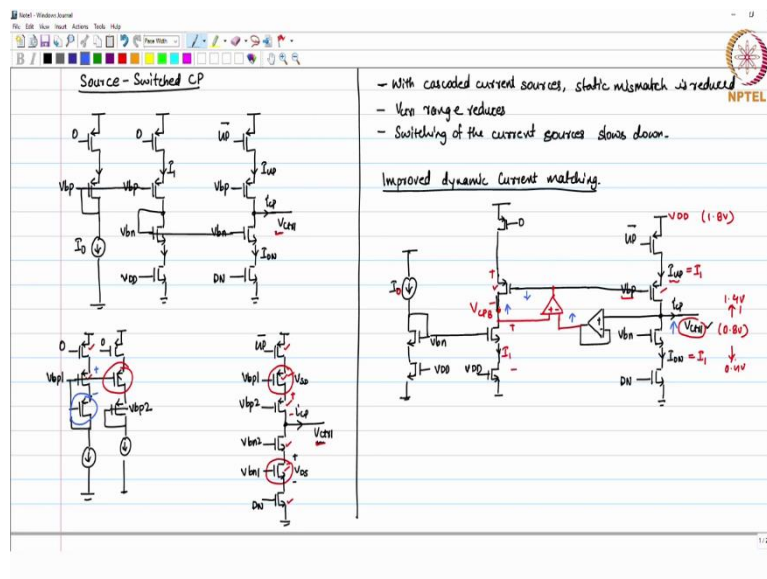 Note1 - Windows Journal
File Edit View Insert Actions Tools Help
Page Width
B I
NPTEL
Source-Switched CP
0 0 U̅P̅
Vbp Vbp I1 Vbp IUP
icp
Vctrl
I0 Vbn Vbn IDN
VDD DN
0 0 U̅P̅
Vbp1 + Vbp1 VSD
Vbp2 Vbp2 icp
Vctrl
Vbn2 +
Vbn1 VDS
-
DN
- With cascoded current sources, static mismatch is reduced
- Vctrl range reduces
- Switching of the current sources slows down.
Improved dynamic Current matching.
0 VDD (1.8V)
U̅P̅
I0 + IUP = I1
Vbp 1.4V
VCPB - + - + icp
Vctrl (0.8V)
Vbn + Vbn
I1 IDN = I1 0.4V
VDD VDD - DN
1/2